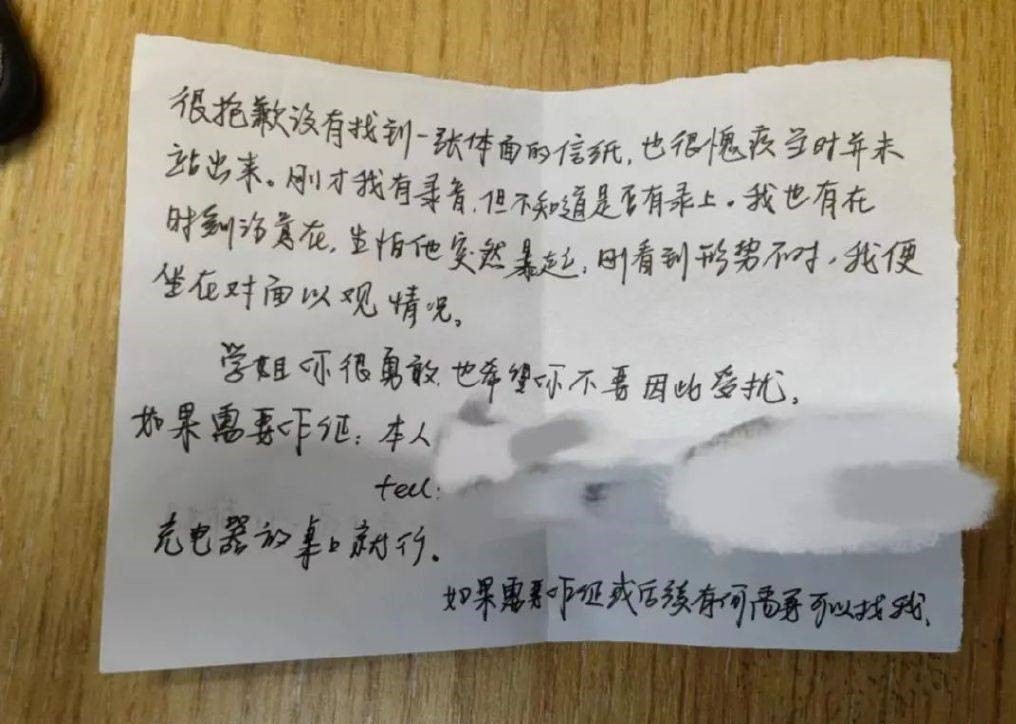 很抱歉没有找到一张体面的信纸,也很愧疚当时并未
站出来。刚才我有录音,但不知道是否有录上。我也有在
时刻注意在,生怕他突然暴起,刚看到形势不对,我便
坐在对面以观情况。
学姐你很勇敢,也希望你不要因此受扰。
如果需要作证:本人
tell:
充电器放桌上就行。
如果需要作证或后续有何需要可以找我。